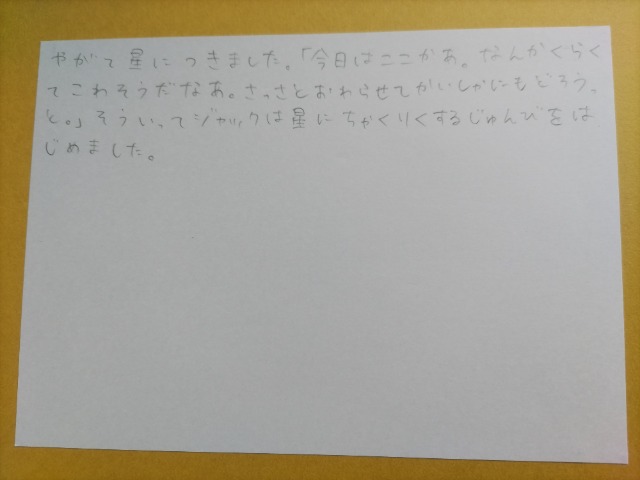 やがて星につきました。「今日はここかあ。なんかぐらく
てこわそうだなあ。さっさとおわらせてかいしゃにもどろうっ
と。」そういってジャックは星にちゃくりくするじゅんびをは
じめました。